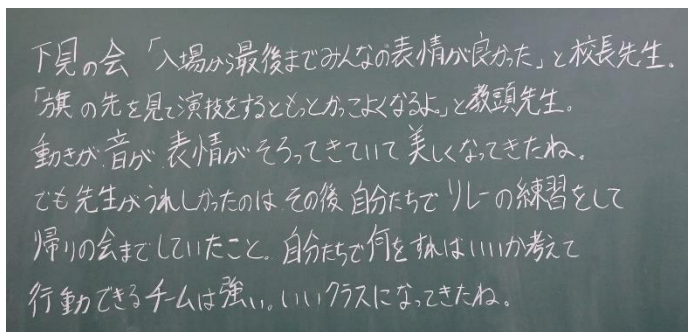 下見の会 「入場から最後までみんなの表情が良かった」と校長先生.
「旗の先を見て演技をするともっとかっこよくなるよ。」と教頭先生。
動きが 音が 表情がそろってきていて 美しくなってきたね。
でも 先生がうれしかったのは その後 自分たちで リレーの練習をして
帰りの会までしていたこと。自分たちで何をすればいいか考えて
行動できるチームは強い。いいクラスになってきたね。